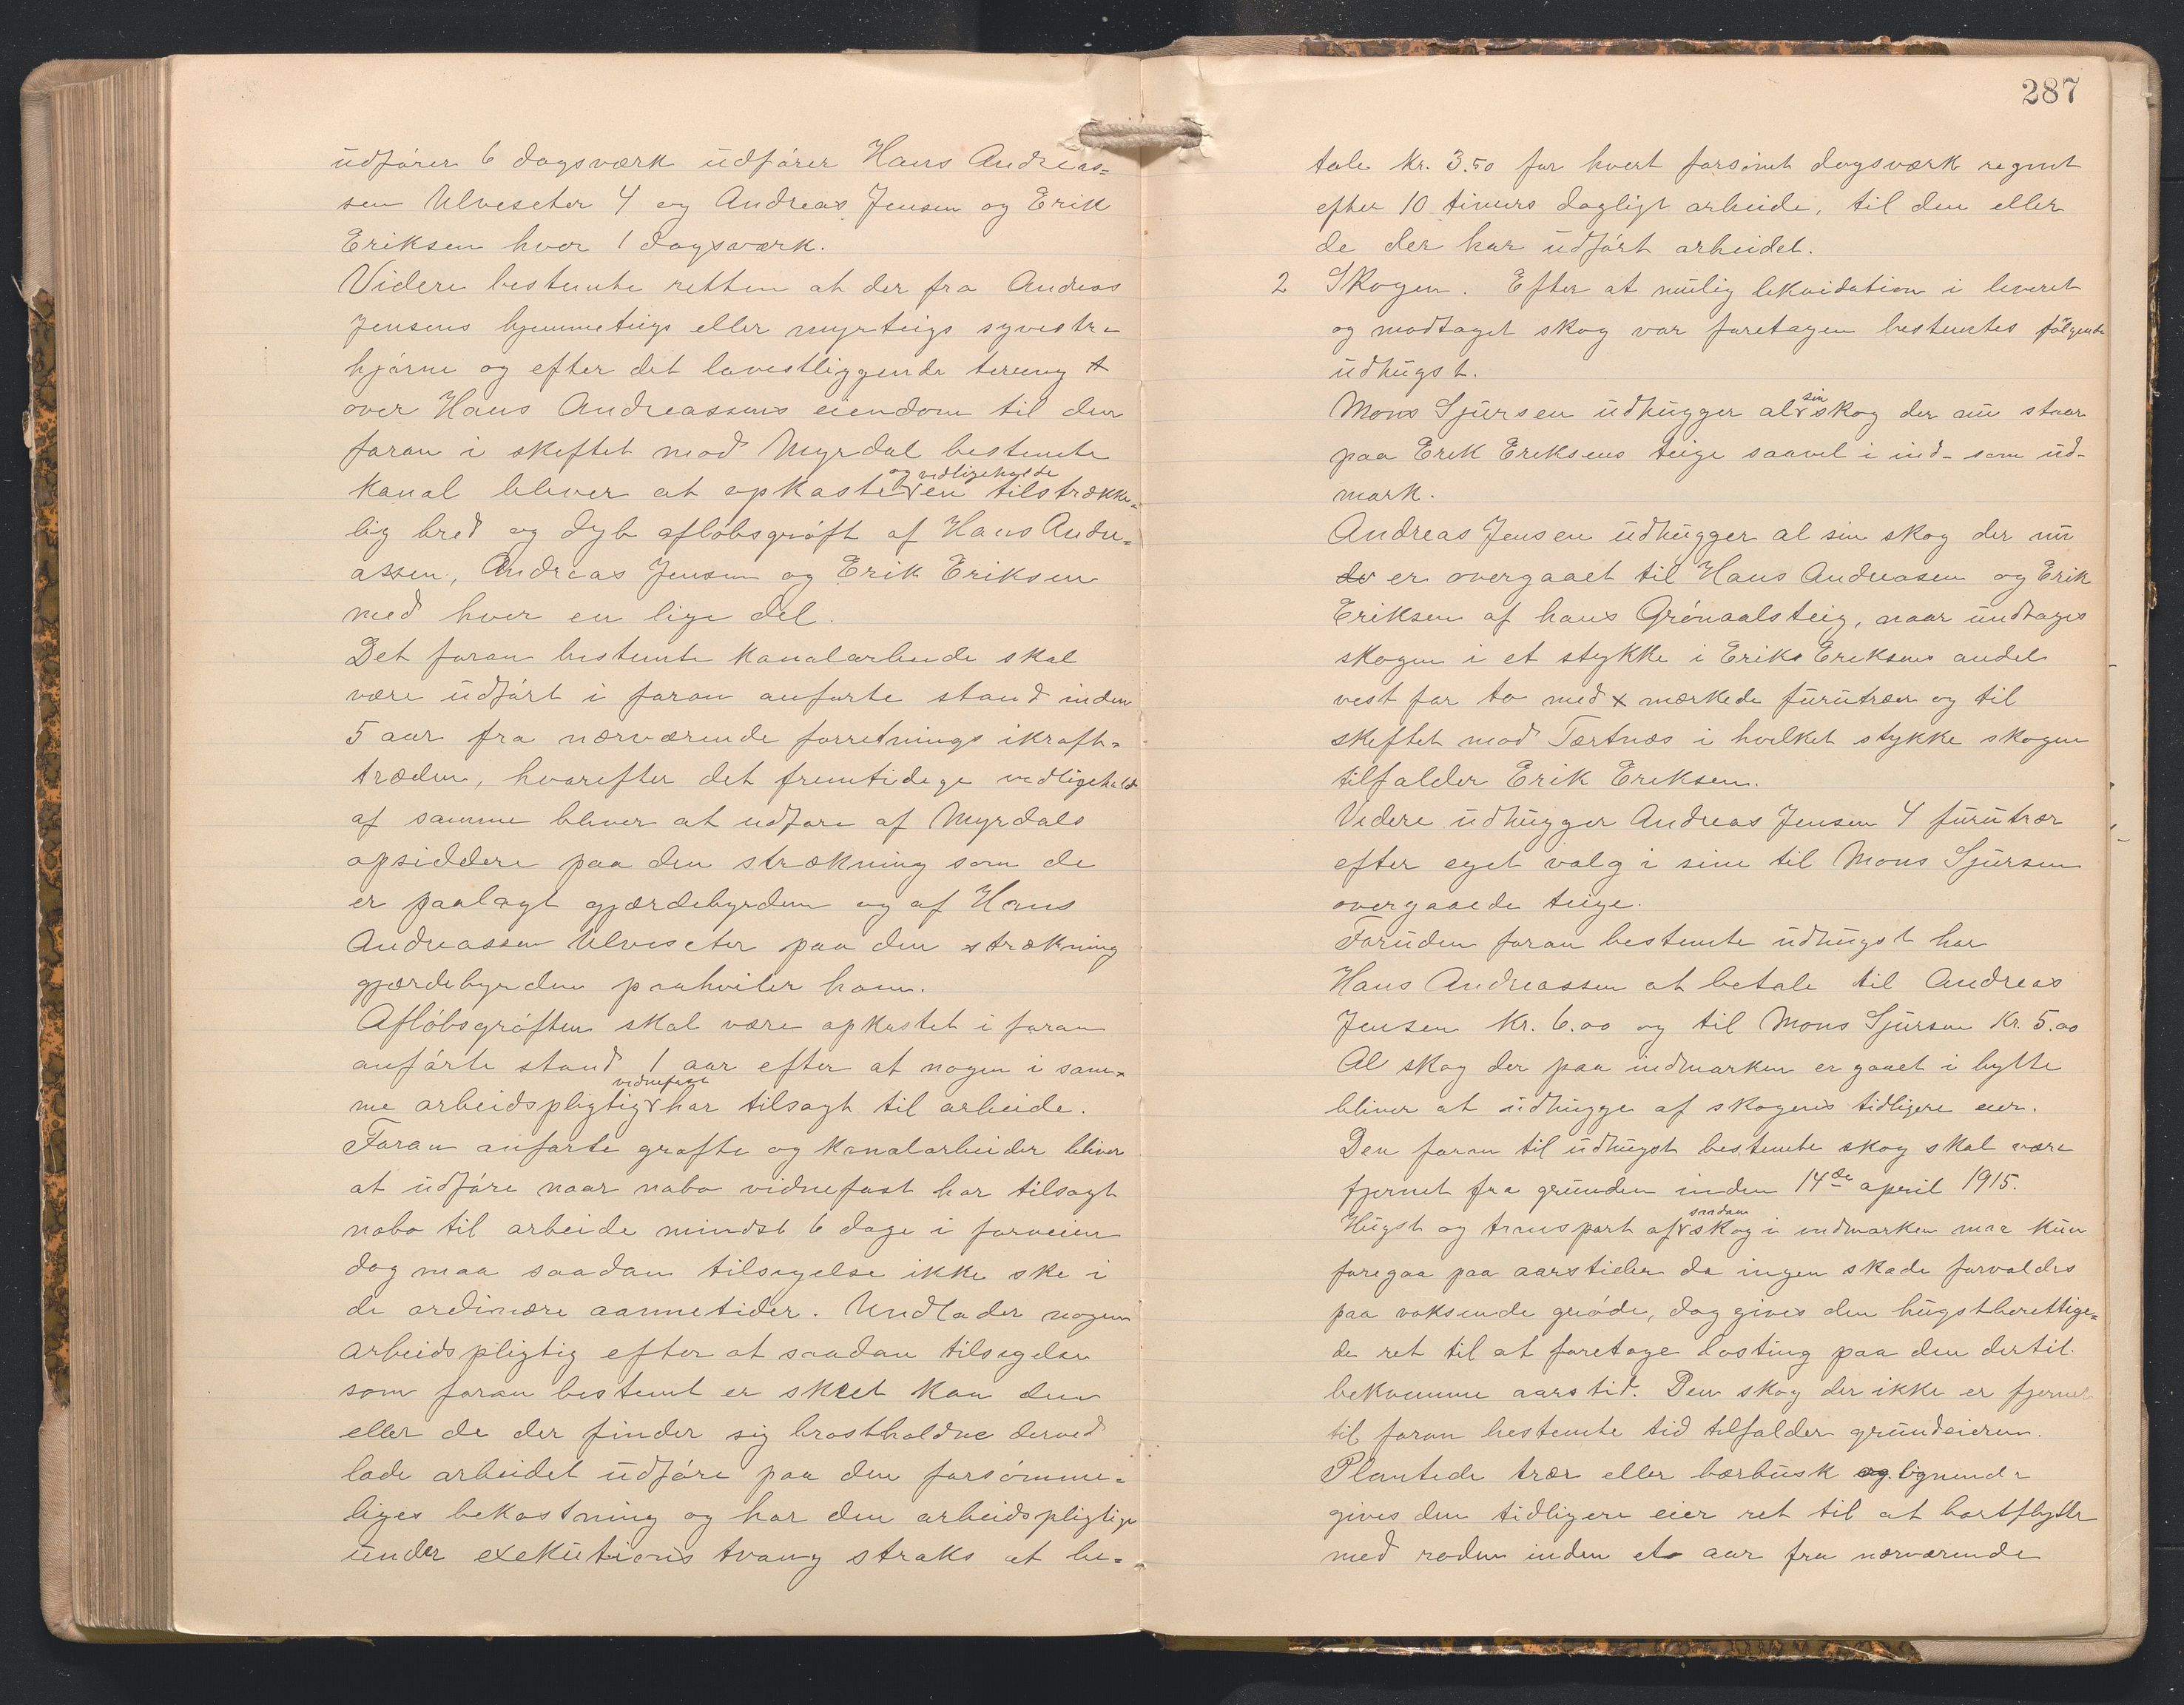 udfører 6 dagsværk udfører Hans Andreas=
sen Ulveseter 4 og Andreas Jensen og Erik
Eriksen hver 1 dagsværk.
Videre bestemte retten at der fra Andreas
Jensens hjemmeteigs eller myrteigs syvestre
hjørne og efter det lavestliggende tereng
over Hans Andreassens eiendom til den
foran i skeftet mod Myrdal bestemte
og vedligeholde
kanal bliver at opkaste en tilstrække=
lig bred og dyb afløbsgrøft af Hans Andre=
assen, Andreas Jensen og Erik Eriksen
med hver en lige del.
Det foran bestemte kanalarbeide skal
være udført i foran anførte stand inden
5 aar fra nærværende forretnings ikraft=
træden, hvorefter det fremtidege vedligehold
af samme bliver at udføre af Myrdals
opsiddere paa den strækning som de
er paalagt gjærdebyrden og af Hans
Andreassen Ulveseter paa den strækning
gjærdebyrden paahviler ham.
Afløbsgrøften skal være opkastet i foran
anførte stand 1 aar efter at nogen i sam=
vidnefast
me arbeidspligtig har tilsagt til arbeide.
Foran anførte grøfte og kanalarbeider bliver
at udføre naar nabo vidnefast har tilsagt
nabo til arbeide mindst 6 dage i forveien
dog maa saadan tilsigelse ikke ske i
de ordinære aannetider. Undlader nogen
arbeidspligtig efter at saadan tilsigelse
som foran bestemt er skeet kan den
eller de der finder sig brøstholdne derved
lade arbeidet udføre paa den forsømme=
liges bekostning og har den arbeidspligtige
under exekutions tvang straks at be=
287
tale kr. 3.50 for hvert forsømt dagsværk regnet
efter 10 timers dagligt arbeide, til den eller
de der har udført arbeidet.
2 Skogen. Efter at mulig likvidation i leveret
og modtaget skog var foretagen bestemtes følgende
udhugst.
sin
Mons Sjursen udhugger al skog der nu staar
paa Erik Eriksens teige saavel i ind- som ud-
mark.
Andreas Jensen udhugger al sin skog der nu
er overgaaet til Hans Andreasen og Erik
Eriksen af hans Grønaalsteig, naar undtages
skogen i et stykke i Eriks Eriksens andel
vest for to med x mærkede furutrær og til
skeftet mod Tertnæs i hvilket stykke skogen
tilfalder Erik Eriksen.
Videre udhugger Andreas Jensen 4 furutrær
efter eget valg i sine til Mons Sjursen
overgaaede teige.
Foruden foran bestemte udhugst har
Hans Andreassen at betale til Andreas
Jensen kr. 6.00 og til Mons Sjursen Kr. 5.00
Al skog der paa indmarken er gaaet i bytte
bliver at udhugge af skogens tidligere eier.
Den foran til udhugst bestemte skog skal være
fjernet fra grunden inden 14de april 1915.
saadan
Hugst og transport af skog i indmarken maa kun
foregaa paa aarstider da ingen skade forvoldes
paa voksende grøde, dog gives den hugstberettige=
de ret til at foretage losting paa den dertil
bekvemme aarstid. Den skog der ikke er fjernet
til foran bestemte tid tilfalder grundeieren.
Plantede trær eller bærbusk og lignende
gives den tidligere eier ret til at bortflytte
med roden inden et aar fra nærværende